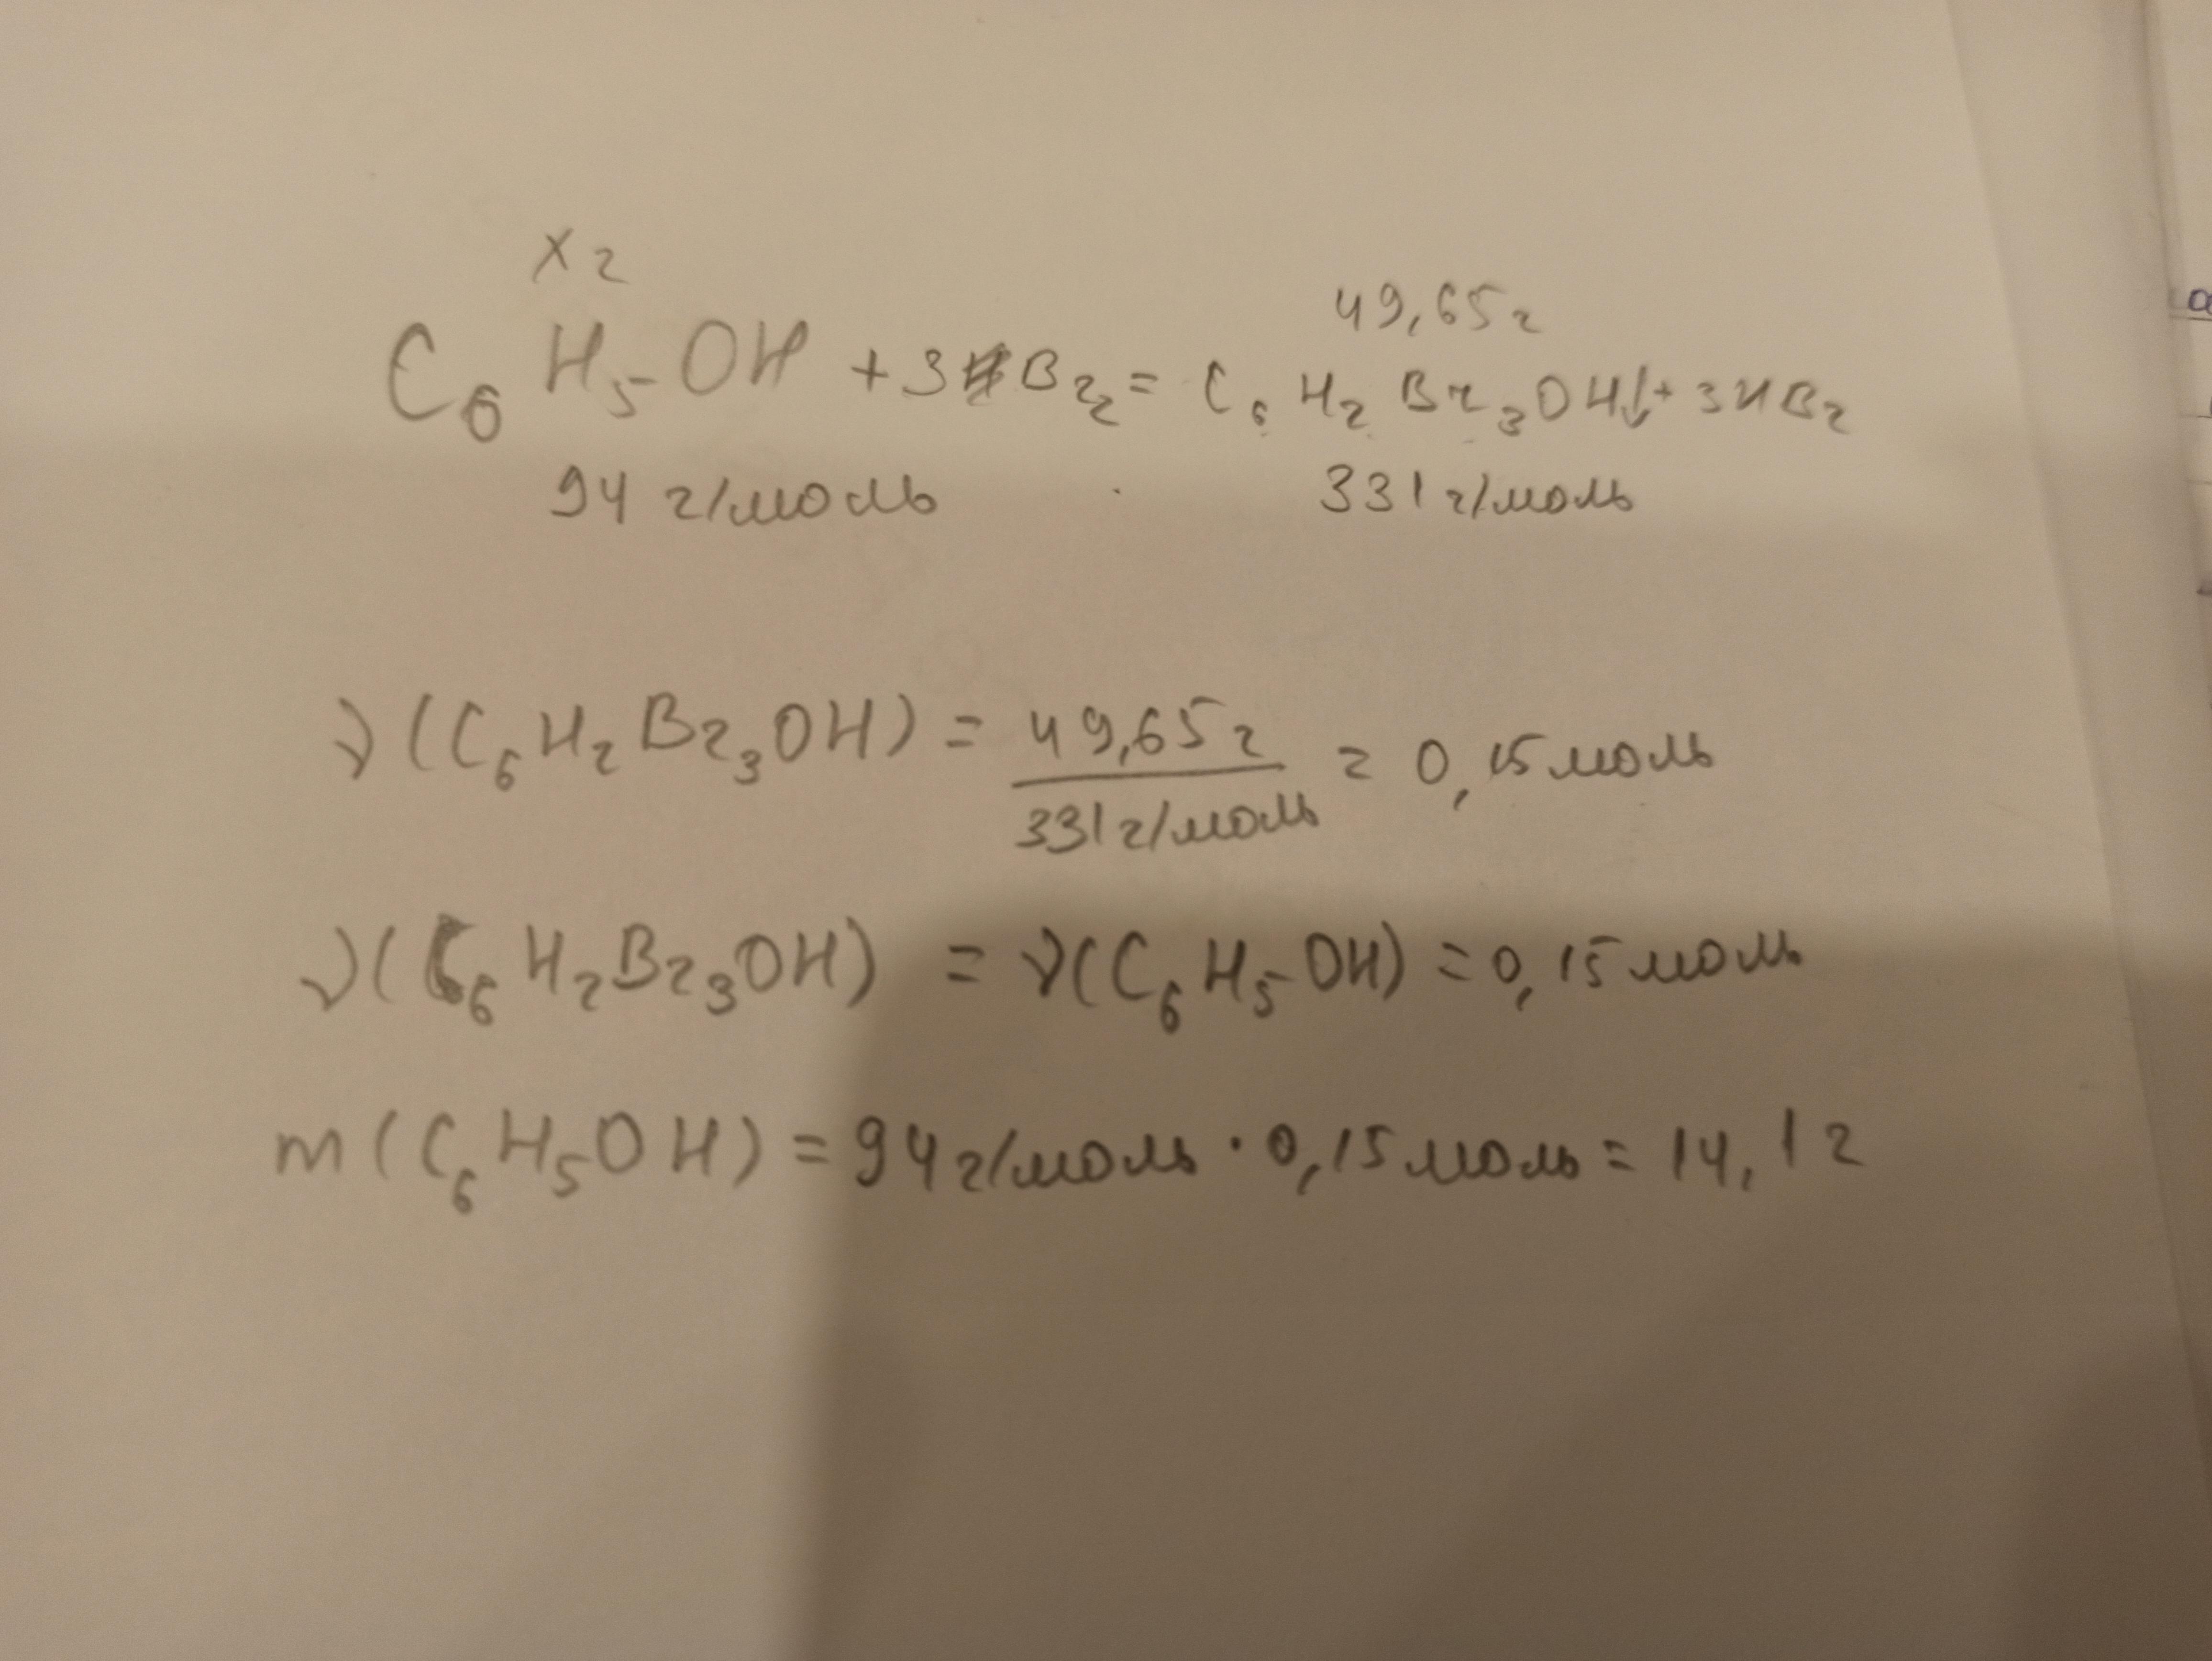 x г
49,65г
C₆H₅OH + 3Br₂ = C₆H₂Br₃OH↓ + 3HBr
94 г/моль 331 г/моль
ν(C₆H₂Br₃OH) = 49,65г / 331г/моль = 0,15моль
ν(C₆H₂Br₃OH) = ν(C₆H₅OH) = 0,15моль
m(C₆H₅OH) = 94г/моль · 0,15моль = 14,1г